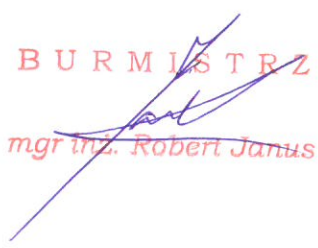 BURMISTRZ
mgr inż. Robert Janus